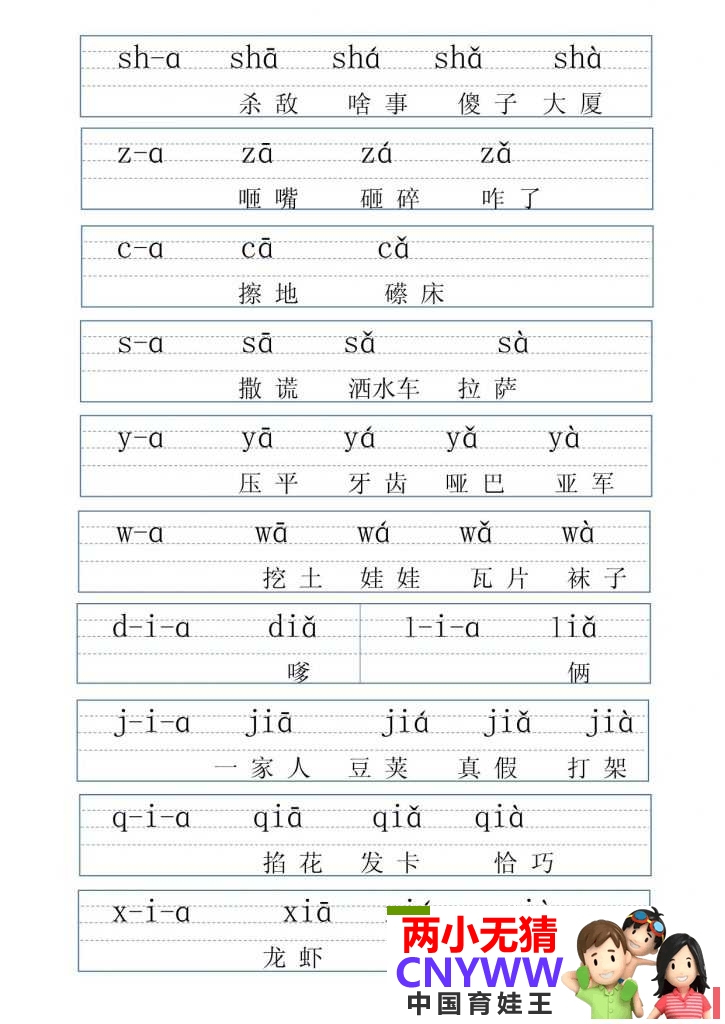 sh-ɑ shā shá shǎ shà
杀 敌 啥 事 傻 子 大 厦
z-ɑ zā zá zǎ
咂 嘴 砸 碎 咋 了
c-ɑ cā cǎ
擦 地 礤 床
s-ɑ sā sǎ sà
撒 谎 洒水车 拉 萨
y-ɑ yā yá yǎ yà
压 平 牙 齿 哑 巴 亚 军
w-ɑ wā wá wǎ wà
挖 土 娃 娃 瓦 片 袜 子
d-i-ɑ diǎ l-i-ɑ liǎ
嗲 俩
j-i-ɑ jiā jiá jiǎ jià
一 家 人 豆 荚 真 假 打 架
q-i-ɑ qiā qiǎ qià
掐 花 发 卡 恰 巧
x-i-ɑ xiā
龙 虾
两小无猜
CNYWW
中国育娃王